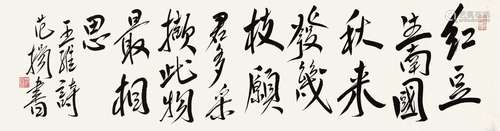 紅豆
生南國
秋来
發幾
枝願
君多采
擷此物
最相
思
王維詩
范揚書